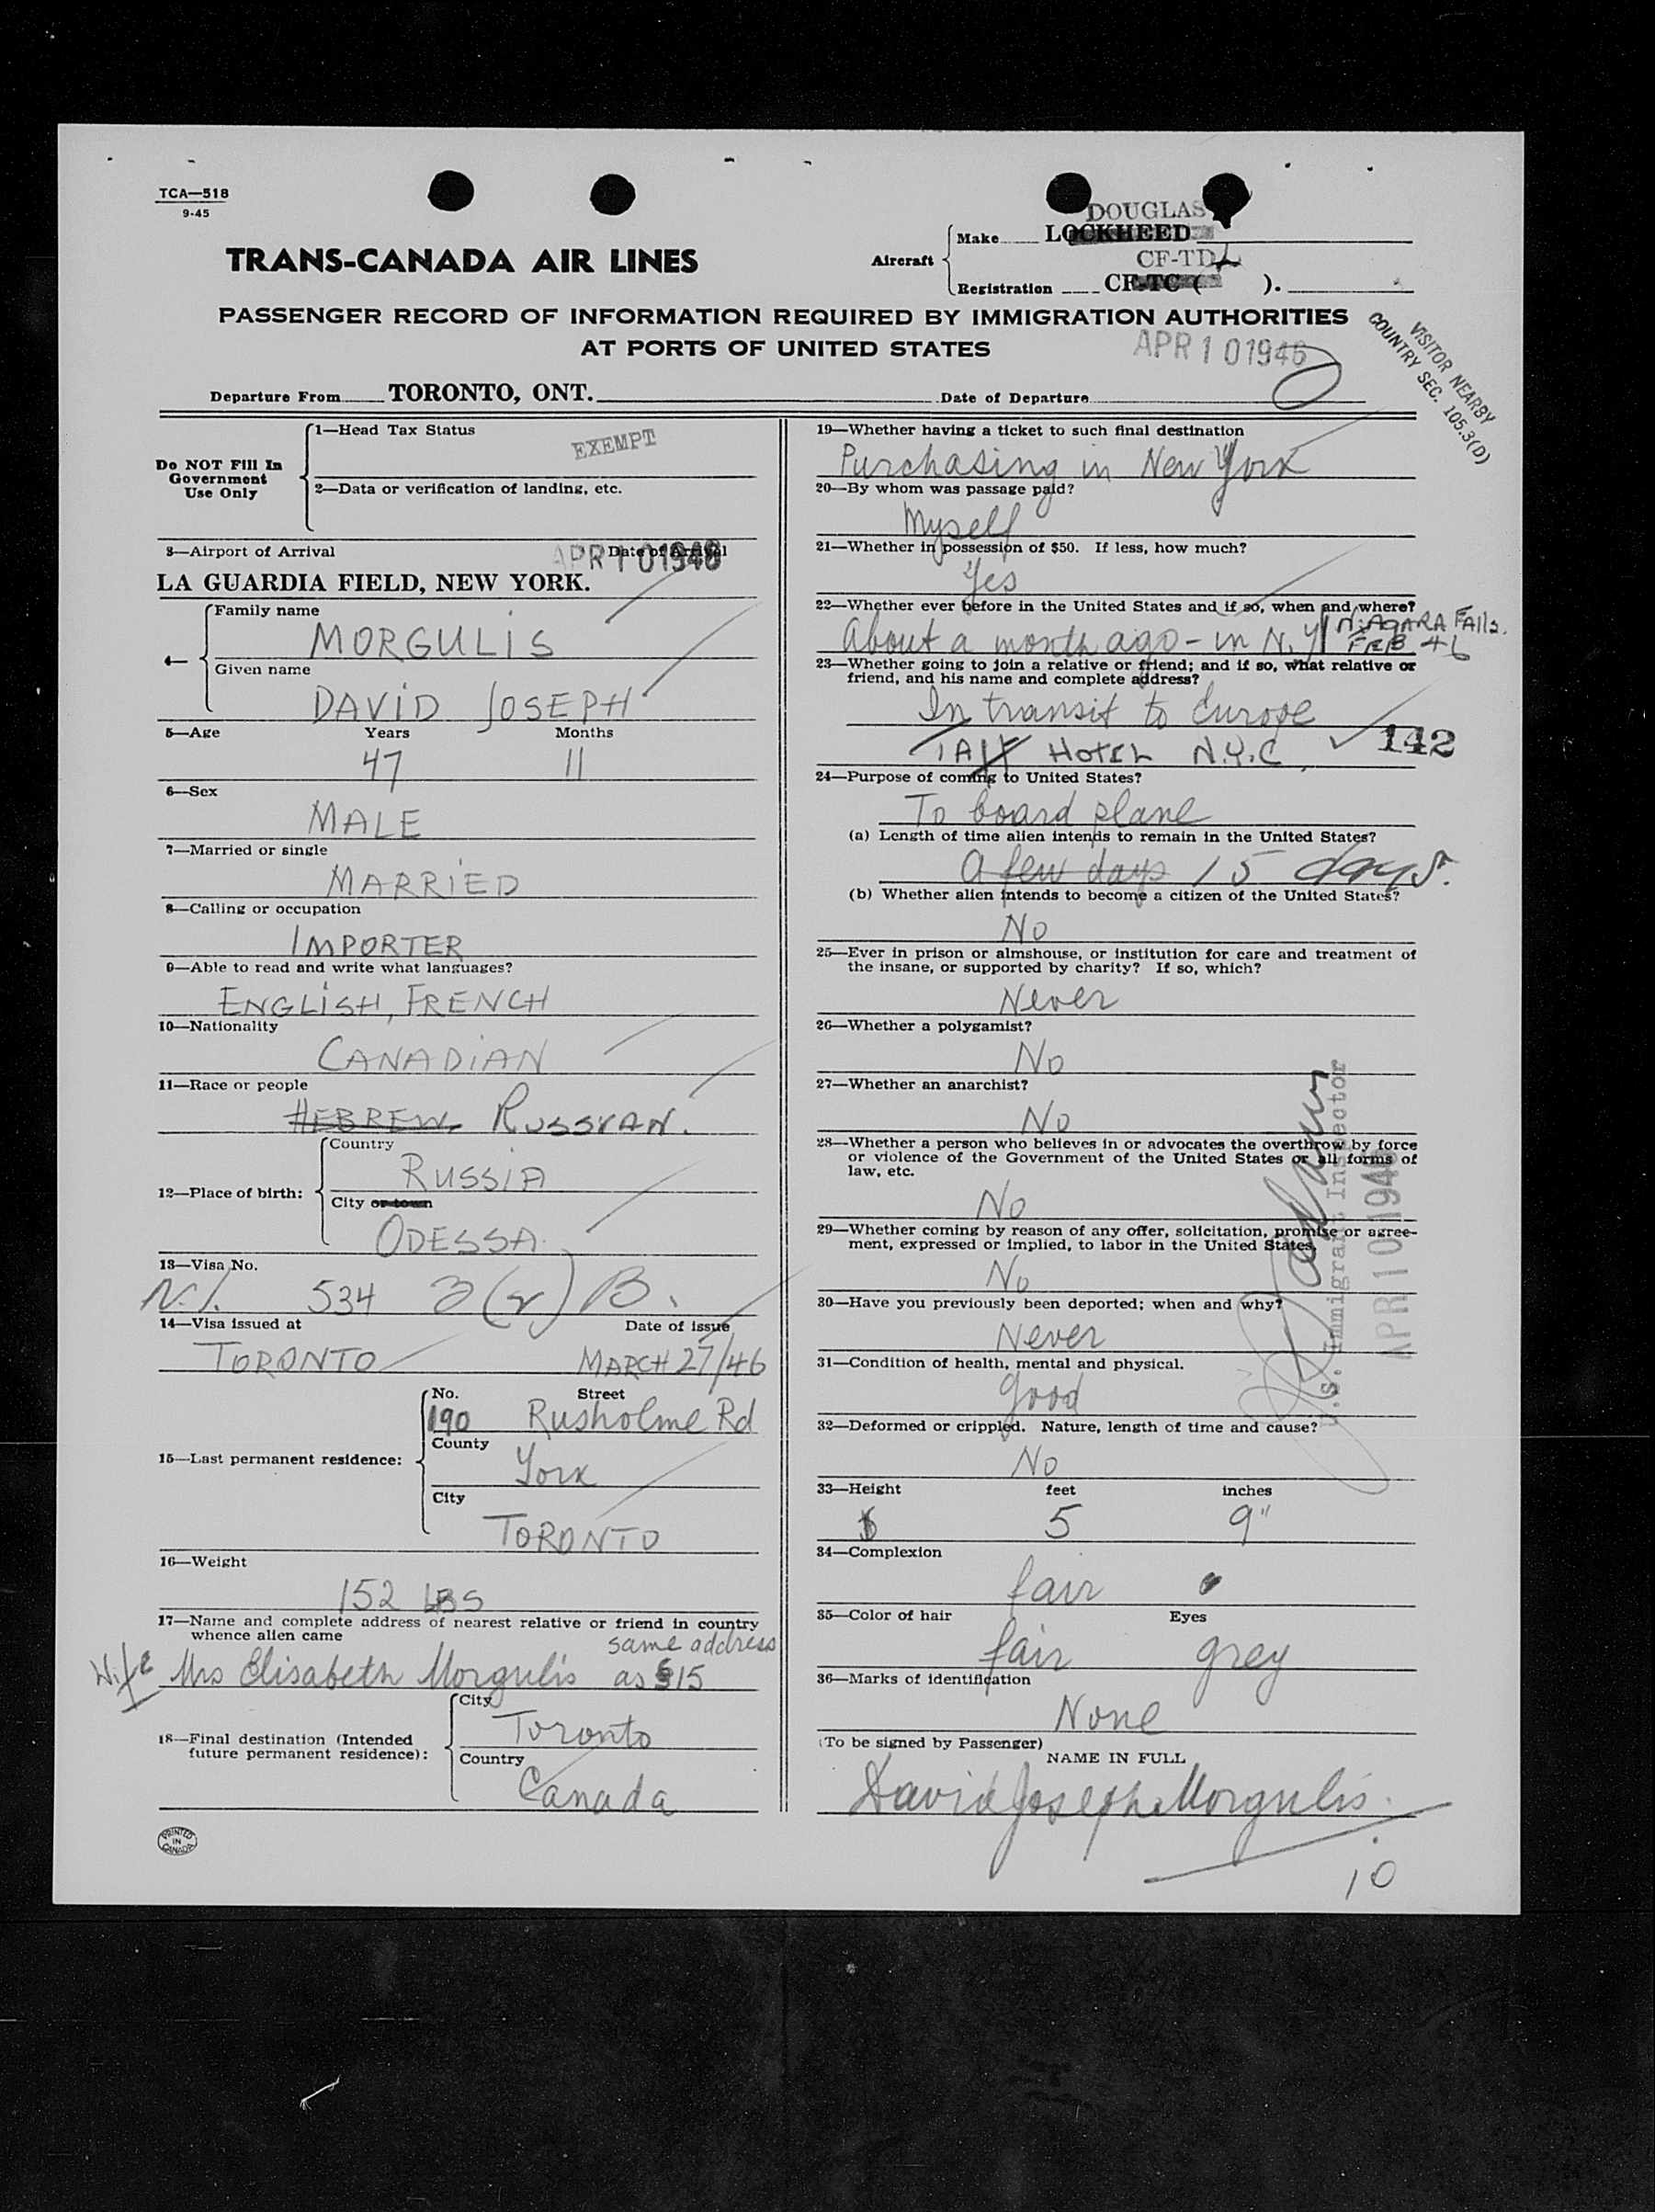 TCA—518
9-45
TRANS-CANADA AIR LINES
Aircraft
Make
DOUGLAS
LOCKHEED
Registration
CF-TD
CF-TC ( ).
PASSENGER RECORD OF INFORMATION REQUIRED BY IMMIGRATION AUTHORITIES
AT PORTS OF UNITED STATES
APR 10 1946
VISITOR NEARBY
COUNTRY SEC. 105.3(D)
Departure From TORONTO, ONT. Date of Departure
Do NOT Fill In
Government
Use Only
1—Head Tax Status
EXEMPT
2—Data or verification of landing, etc.
3—Airport of Arrival Date of Arrival
APR 10 1946
LA GUARDIA FIELD, NEW YORK.
Family name
MORGULIS
Given name
DAVID JOSEPH
5—Age Years Months
47 11
6—Sex
MALE
7—Married or single
MARRIED
8—Calling or occupation
IMPORTER
9—Able to read and write what languages?
ENGLISH, FRENCH
10—Nationality
CANADIAN
11—Race or people
HEBREW RUSSIAN.
12—Place of birth:
Country
RUSSIA
City or town
ODESSA
13—Visa No.
N.I. 534 3(2) B.
14—Visa issued at Date of issue
TORONTO MARCH 27/46
15—Last permanent residence:
No. Street
190 Rusholme Rd
County
York
City
TORONTO
16—Weight
152 LBS
17—Name and complete address of nearest relative or friend in country
whence alien came
same address
Wife Mrs Elisabeth Morgulis as § 15
18—Final destination (Intended
future permanent residence):
City
Toronto
Country
Canada
PRINTED
IN
CANADA
19—Whether having a ticket to such final destination
Purchasing in New York
20—By whom was passage paid?
Myself
21—Whether in possession of $50. If less, how much?
Yes
22—Whether ever before in the United States and if so, when and where?
About a month ago - in N.Y. NiAGARA FAlls.
FEB 46
23—Whether going to join a relative or friend; and if so, what relative or
friend, and his name and complete address?
In transit to Europe
TAFT HOTEL N.Y.C. 142
24—Purpose of coming to United States?
To board plane
(a) Length of time alien intends to remain in the United States?
A few days 15 days.
(b) Whether alien intends to become a citizen of the United States?
No
25—Ever in prison or almshouse, or institution for care and treatment of
the insane, or supported by charity? If so, which?
Never
26—Whether a polygamist?
No
27—Whether an anarchist?
No
28—Whether a person who believes in or advocates the overthrow by force
or violence of the Government of the United States or all forms of
law, etc.
No
29—Whether coming by reason of any offer, solicitation, promise or agree-
ment, expressed or implied, to labor in the United States.
No
30—Have you previously been deported; when and why?
Never
31—Condition of health, mental and physical.
good
32—Deformed or crippled. Nature, length of time and cause?
No
U.S. Immigrant Inspector
APR 10 1946
33—Height feet inches
5 9"
34—Complexion
fair
35—Color of hair Eyes
fair grey
36—Marks of identification
None
(To be signed by Passenger)
NAME IN FULL
David Joseph Morgulis.
10